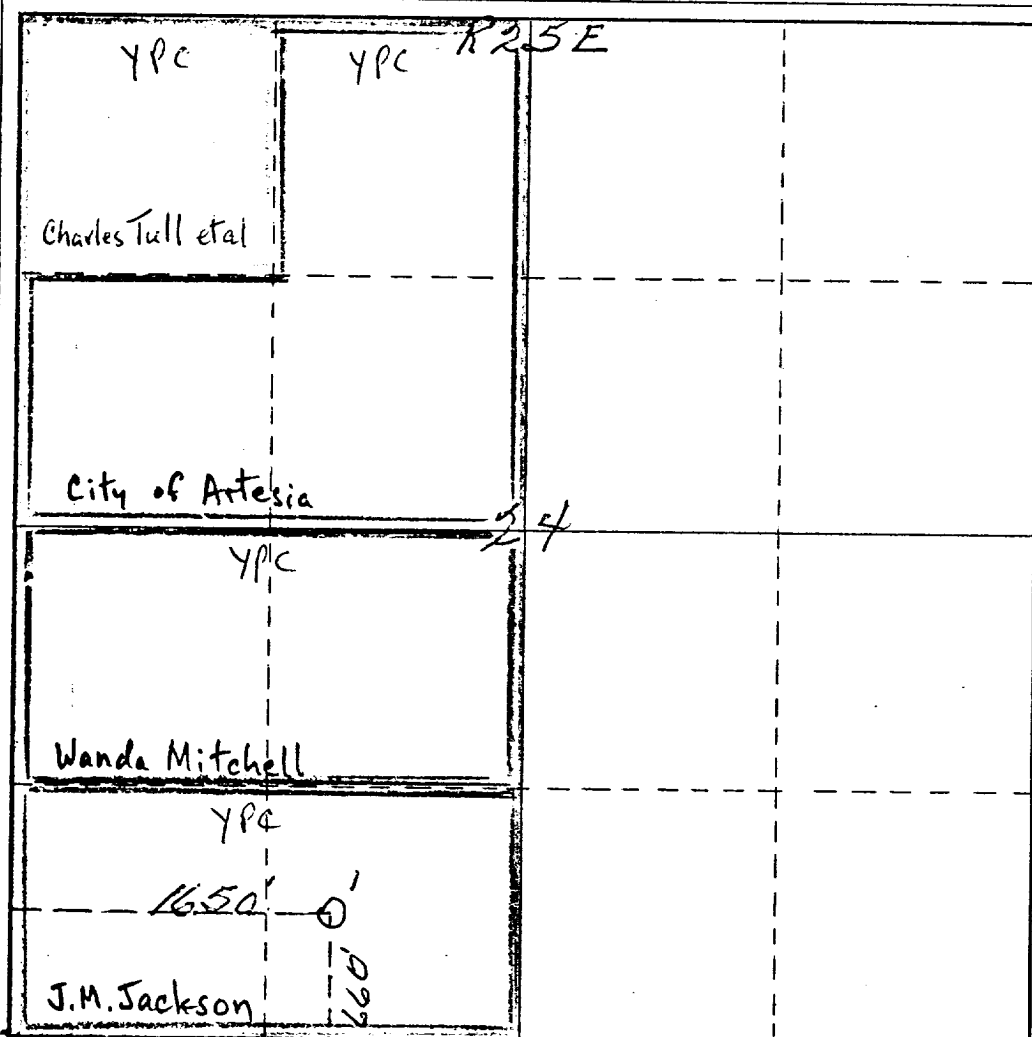 R25E
YPC
YPC
Charles Tull etal
City of Artesia
24
YPC
Wanda Mitchell
YPC
1650'
660'
J.M. Jackson